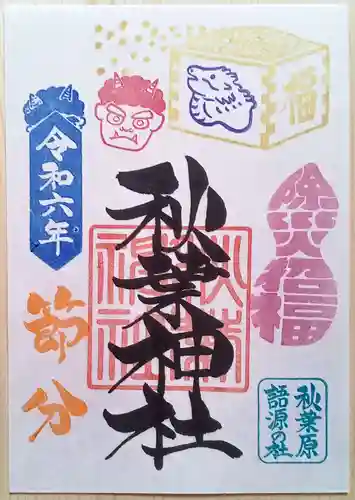 福
令和六年
除災招福
秋葉神社
秋葉神社
節分
秋葉原
語源の社